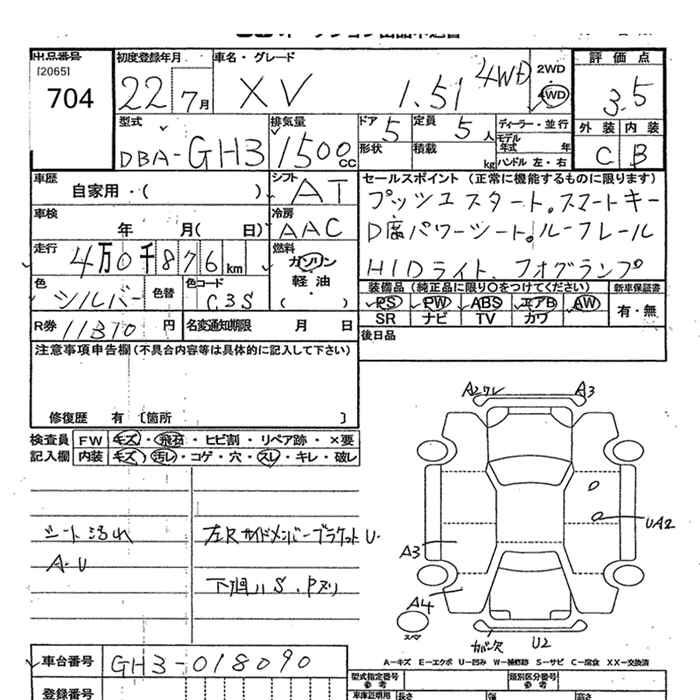 出品番号
[2065]
704
初度登録年月
22 7月
車名・グレード
XV 1.5i 4WD
2WD
4WD
評価点
3.5
外装 内装
C B
型式
DBA-GH3
排気量
1500cc
ドア 5
定員 5人
形状
積載 kg
ディーラー・並行
モデル年式 年
ハンドル 左・右
車歴
自家用・( )
シフト
AT
セールスポイント (正常に機能するものに限ります)
プッシュスタート。スマートキー
D席パワーシート。ルーフレール
HIDライト、フォグランプ
車検
年 月( 日)
冷房
AAC
走行
4万0千876km
燃料
ガソリン
軽油
( ・ )
色
シルバー
色替
色コード
C3S
装備品 (純正品に限り○をつけてください)
PS PW ABS エアB AW
SR ナビ TV カワ
新車保証書
有・無
R券 11310円
名変通知期限 月 日
後日品
注意事項申告欄 (不具合内容等は具体的に記入して下さい)
修復歴 有 〔箇所 〕
検査員記入欄
FW キズ・飛石・ヒビ割・リペア跡・×要
内装 キズ・汚レ・コゲ・穴・スレ・キレ・破レ
シート汚れ
A・U
左Rサイドメンバーブラケット U・
下廻り S、Pヌリ
A2ワレ
A3
UA2
A3
A4
スペ
カバー欠
U2
車台番号
GH3-018090
A-キズ E-エクボ U-凹み W-補修跡 S-サビ C-腐食 XX-交換済
登録番号
型式指定番号
参考
類別区分番号
参考
車庫証明用
長さ
幅
高さ